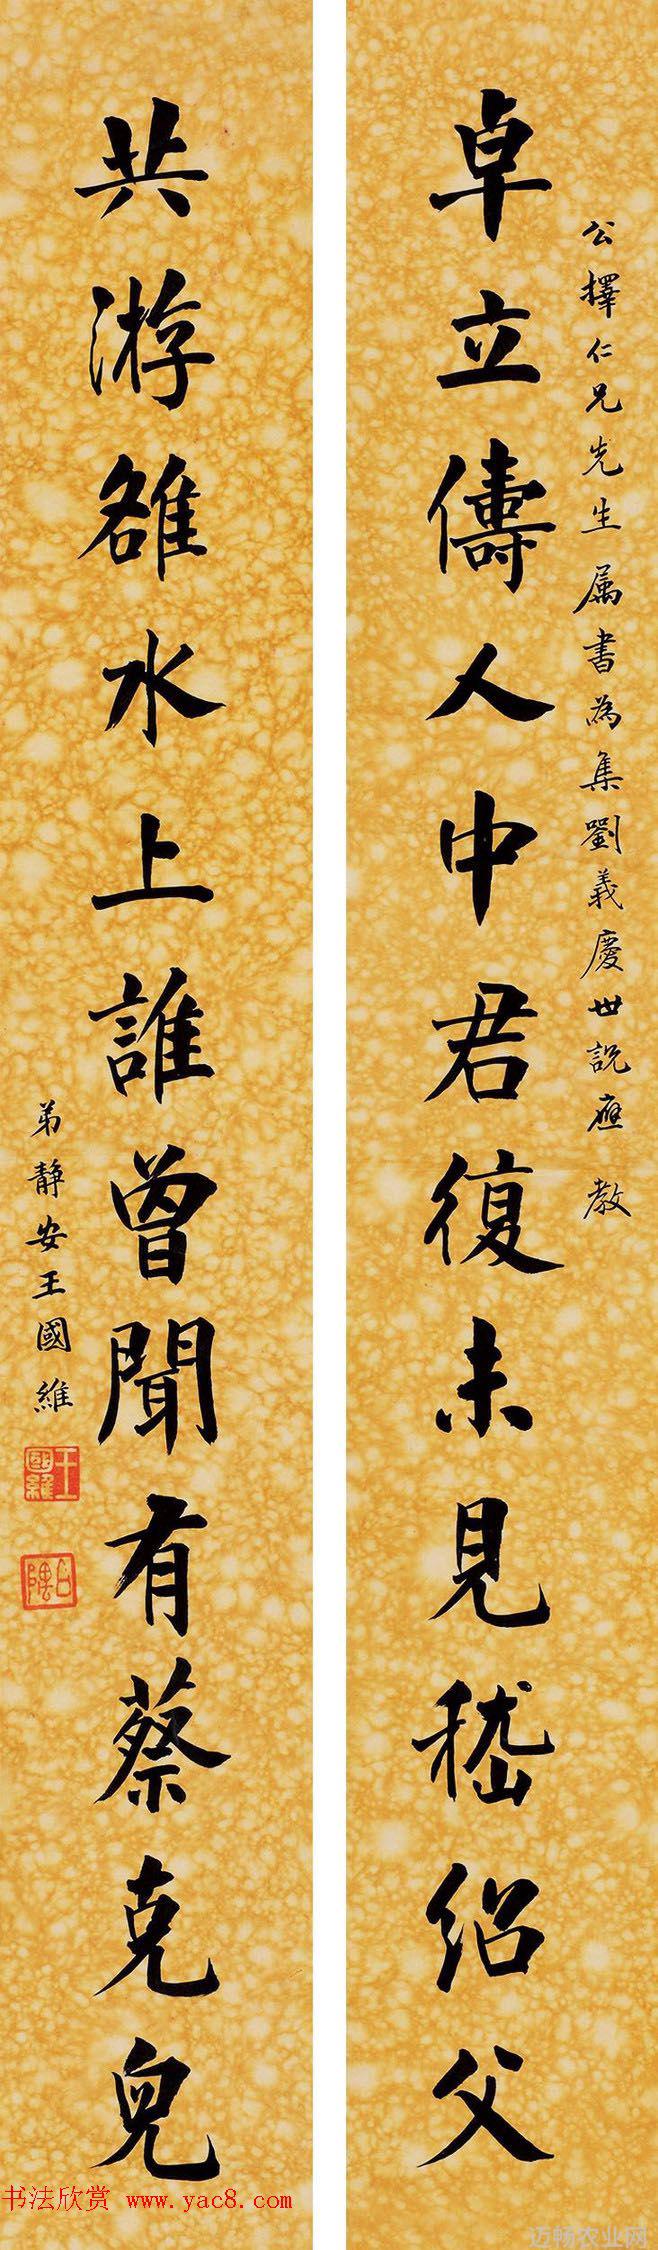 公擇仁兄先生属書為集劉義慶世說應 教
卓立儔人中君復未見嵇紹父
共游雒水上誰曾聞有蔡克兒
弟靜安王國維
王國維
书法欣赏 www.yac8.com
迈畅农业网